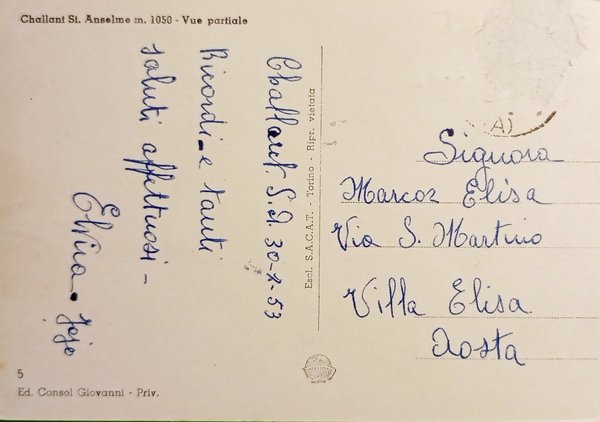 Challant St. Anselme m. 1050 - Vue partiale
Challant. S. A. 30-8-53
Ricordi e tanti
saluti affettuosi -
Elvira - Jeje
Escl. S.A.C.A.T. - Torino - Ripr. vietata
A)
Signora
Marcoz Elisa
Via S. Martino
Villa Elisa
Aosta
5
Ed. Consol Giovanni - Priv.